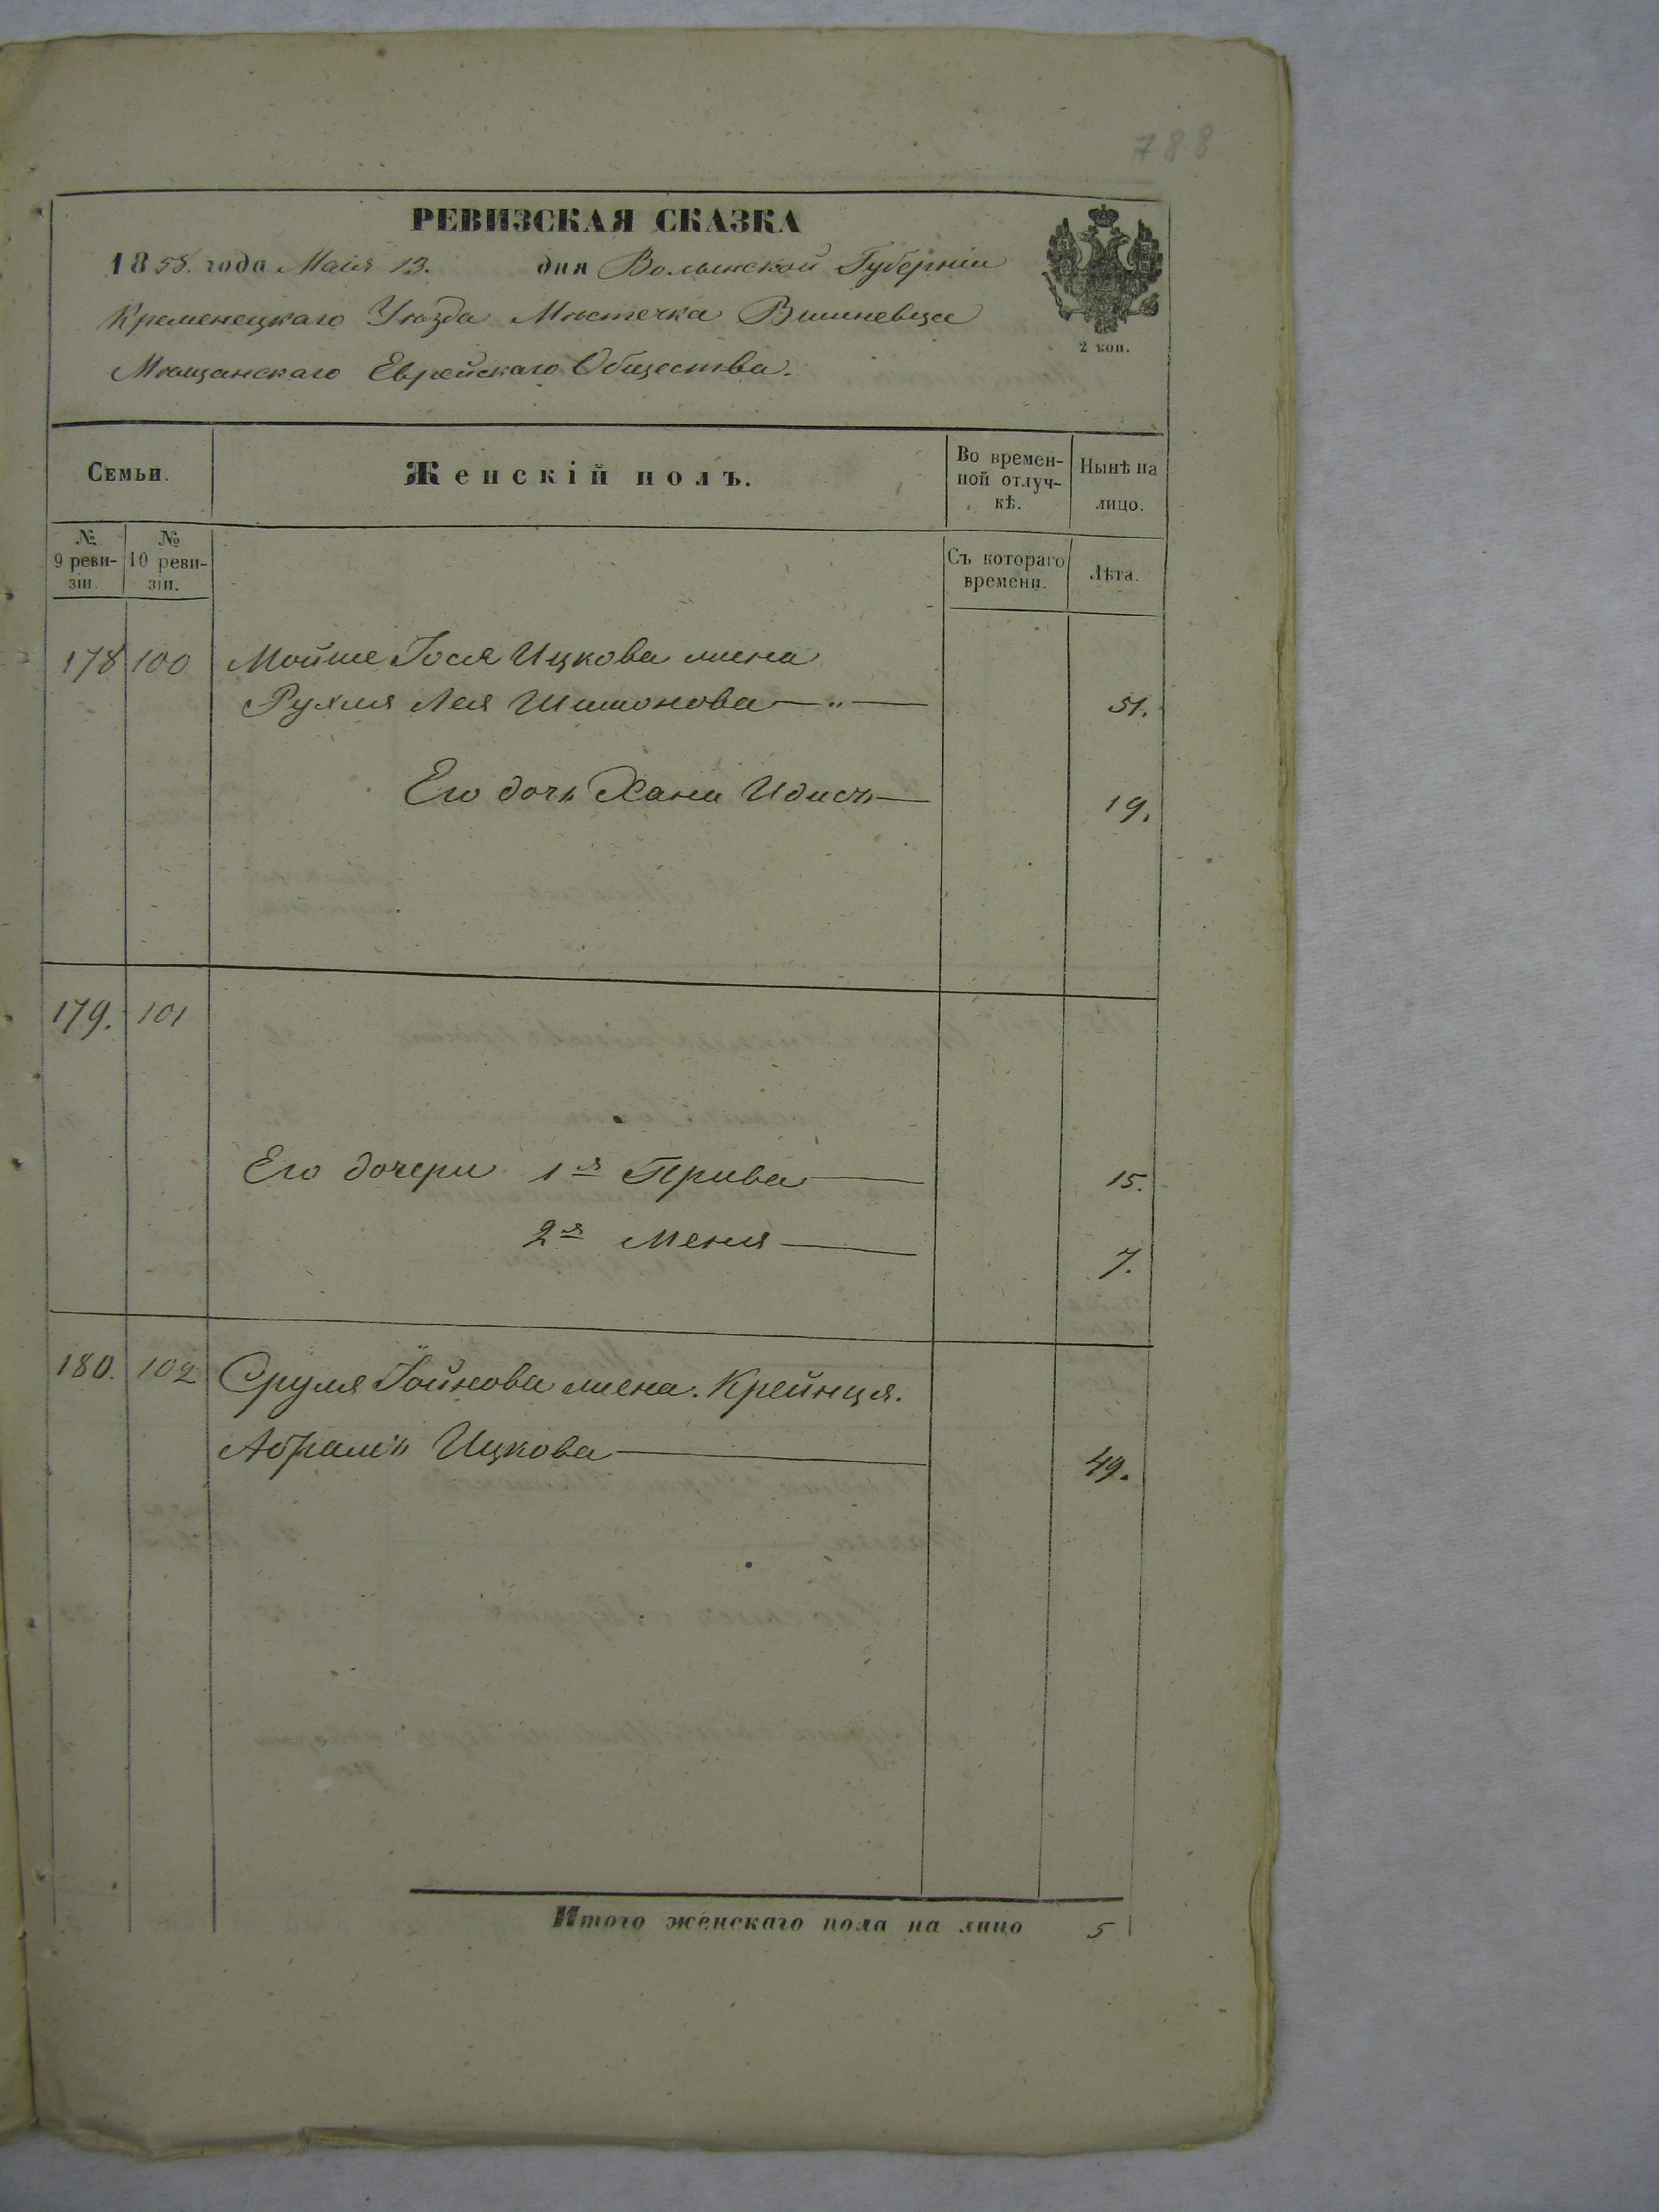 788
РЕВИЗСКАЯ СКАЗКА
1858. года Маія 13. дня Волынской Губерніи
Кременецкаго Уѣзда Мѣстечка Вишневца
Мѣщанскаго Еврейскаго Общества.
2 коп.
Семьи.
Женскій полъ.
Во времен-
ной отлуч-
кѣ.
Нынѣ на
лицо.
№
9 реви-
зіи.
№
10 реви-
зіи.
Съ котораго
времени.
Лѣта.
178 100 Мойше Іося Ицкова жена
Рухля Лея Шимонова — " — 51.
Его дочь Хана Идисъ — 19.
179. 101
Его дочери 1я Прива — 15.
2я Меня — 7.
180. 102 Сруля Іойнова жена. Крейнця.
Абрамъ Ицкова — 49.
Итого женскаго пола на лицо 5